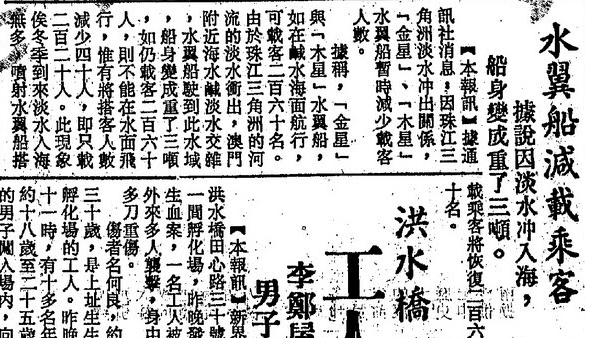 水翼船減載乘客
據說因淡水冲入海，
船身變成重了三噸。
【本報訊】據通
訊社消息：因珠江三
角洲淡水冲出關係，
「金星」、「木星」
水翼船暫時減少載客
人數。
據稱，「金星」
與「木星」水翼船，
如在鹹水海面航行，
可載客二百六十名。
由於珠江三角洲的河
流的淡水衝出，澳門
附近海水鹹淡水交雜
，水翼船駛到此水域
，船身變成重了三噸
，如仍載客二百六十
人，則不能在水面飛
行，惟有將搭客人數
減少四十人，即只載
二百二十人。此現象
俟冬季到來淡水入海
無多，噴射水翼船搭
載乘客將恢復二百六
十名。
洪水橋
工人
李鄭屋
男子
【本報訊】新界
洪水橋田心路三十號
一間孵化場，昨晚發
生血案，一名工人被
外來多人襲擊，身中
多刀重傷。
傷者名何良，約
三十歲，是上址生生
孵化場的工人。昨晚
十一時，有十多名年
約十八歲至二十五歲
的男子闖入場內，向